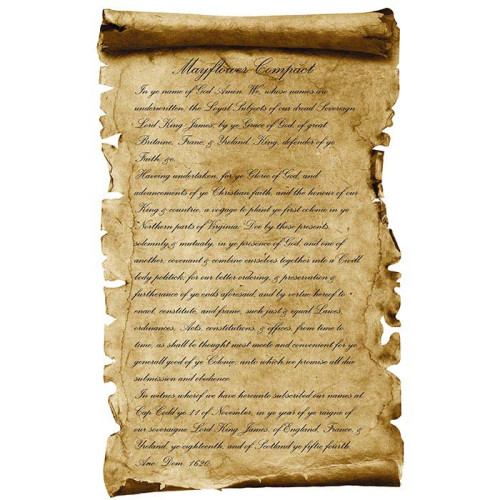 Mayflower Compact
In ye name of God Amen. We, whose names are
underwritten, the Loyal Subjects of our dread Sovereign
Lord King James, by ye Grace of God, of great
Britaine, Franc, & Ireland, King, defender of ye
Faith, &c.
Haveing undertaken, for ye Glorie of God, and
advancements of ye Christian faith, and the honour of our
King & countrie, a voyage to plant ye first colonie in ye
Northern parts of Virginia; Doe by these presents,
solemnly & mutualy, in ye presence of God, and one of
another, covenant & combine ourselves together into a Civill
body politick, for our better ordering, & preservation &
furtherance of ye ends aforesaid; and by vertue hereof to
enact, constitute, and frame, such just & equal Lawes,
ordinances, Acts, constitutions, & offices, from time to
time, as shall be thought most meete and convenient for ye
generall good of ye Colonie; unto which we promise all due
submission and obedience.
In witness wherof we have hereunto subscribed our names at
Cap Codd ye 11 of November, in ye year of ye raigne of
our soveraigne Lord King James, of England, France, &
Ireland, ye eighteenth, and of Scotland ye fiftie fourth.
Ano Dom. 1620.